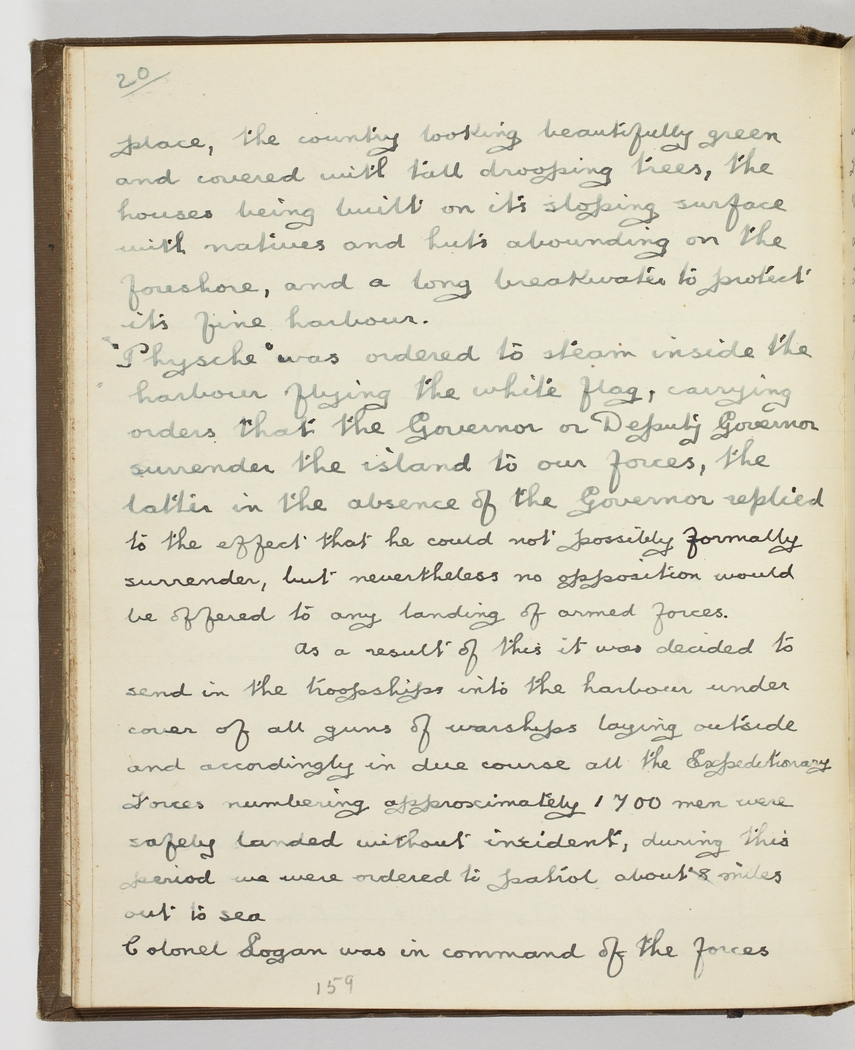 20
place, the country looking beautifully green
and covered with tall drooping trees, the
houses being built on it's sloping surface
with natives and huts abounding on the
foreshore, and a long breakwater to protect
it's fine harbour.
"Physche" was ordered to steam inside the
harbour flying the white flag, carrying
orders that the Governor or Deputy Governor
surrender the island to our forces, the
latter in the absence of the Governor replied
to the effect that he could not possibly formally
surrender, but nevertheless no opposition would
be offered to any landing of armed forces.
As a result of this it was decided to
send in the troopships into the harbour under
cover of all guns of warships laying outside
and accordingly in due course all the Expeditionary
Forces numbering approximately 1700 men were
safely landed without incident, during this
period we were ordered to patrol about 8 miles
out to sea
Colonel Logan was in command of the forces
159